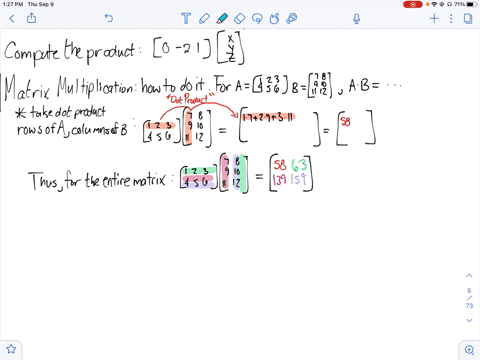 1:27 PM Thu Sep 9
71%
Compute the product: [0 -2 1] [x y z]
Matrix Multiplication: how to do it. For A = [1 2 3 4 5 6] B = [7 8 9 10 11 12], A·B = ...
"Dot Product"
* take dot product
rows of A, columns of B : [1 2 3 4 5 6] [7 8 9 10 11 12] = [1·7+2·9+3·11 ] = [58 ]
Thus, for the entire matrix: [1 2 3 4 5 6] [7 8 9 10 11 12] = [58 63 139 154]
5
/
73